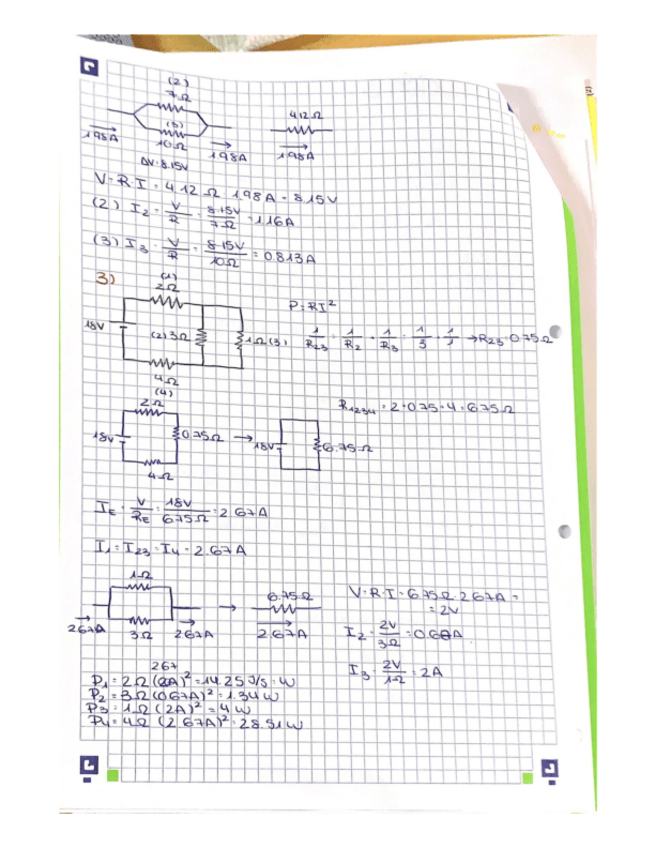 (2)
7Ω
(3)
10Ω
1.98A
1.98A
ΔV=8.15V
4.12Ω
1.98A
V=R·I=4.12Ω·1.98A=8.15V
(2) I2=V/R=8.15V/7Ω=1.16A
(3) I3=V/R=8.15V/10Ω=0.813A
3)
(1)
2Ω
18V
(2)3Ω
1Ω(3)
4Ω
(4)
P=RI²
1/R23=1/R2+1/R3=1/3+1/1→R23=0.75Ω
2Ω
18V
0.75Ω
4Ω
→
18V
6.75Ω
R1234=2+0.75+4=6.75Ω
IE=V/RE=18V/6.75Ω=2.67A
I1=I23=I4=2.67A
1Ω
3Ω
2.67A
2.67A
→
6.75Ω
2.67A
V=R·I=6.75Ω·2.67A=
=2V
I2=2V/3Ω=0.67A
I3=2V/1Ω=2A
2.67
P1=2Ω(2A)²=14.25J/s=W
P2=3Ω(0.67A)²=1.34W
P3=1Ω(2A)²=4W
P4=4Ω(2.67A)²=28.51W